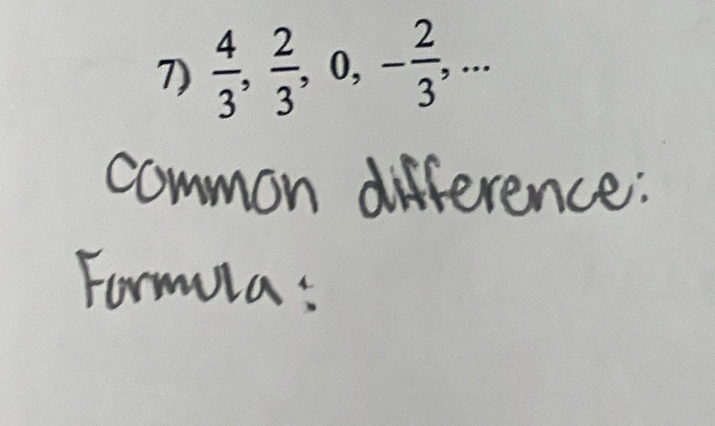 7) 4/3, 2/3, 0, -2/3, ...
common difference:
Formula: